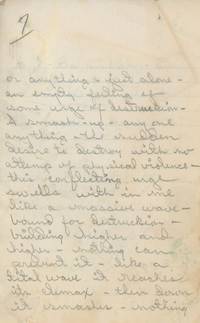 7
or anything & just alone -
an empty feeling of
some urge of destruction -
A smash-up - any one
any thing - the sudden
desire to destroy with no
attemp of physical violence -
this conflicting urge
swells with-in me
like a massive wave -
bound for destruction -
building higher and
higher - nothing can
prevent it - like a
tital wave it reaches
its climax - then down
it smashes - nothing